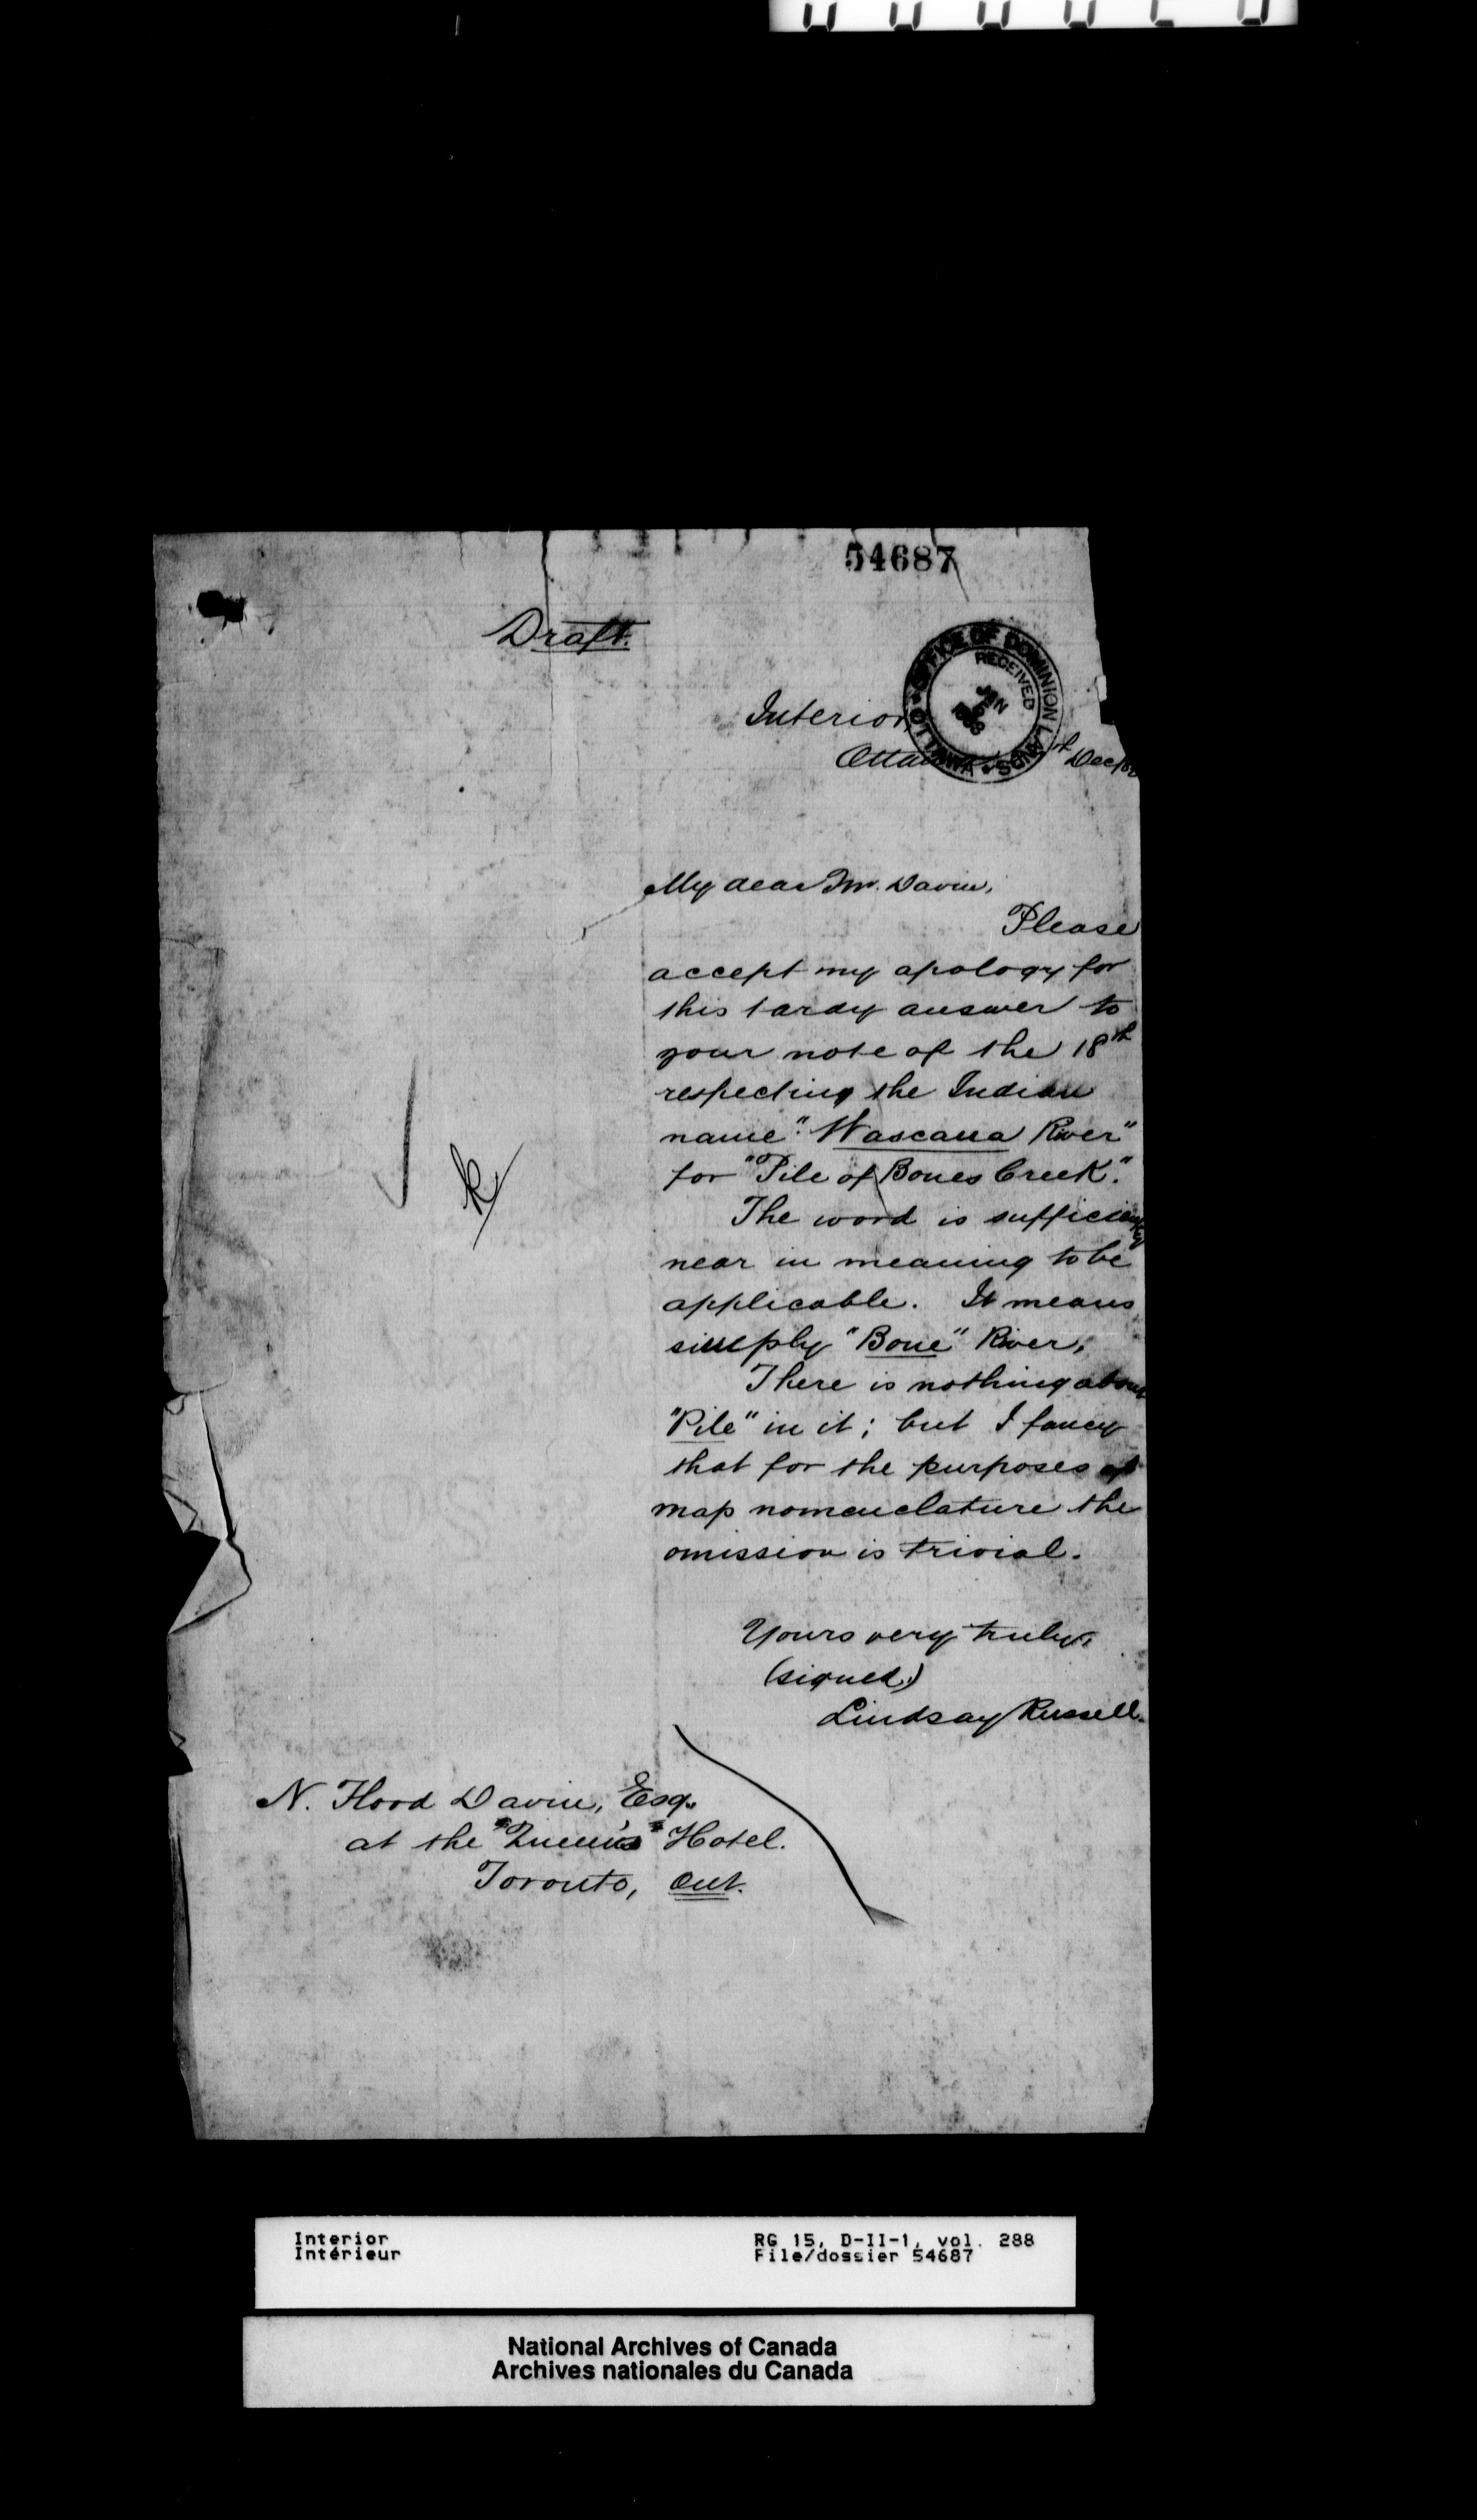 54687
Draft.
OFFICE OF DOMINION LANDS
OTTAWA
RECEIVED
JAN
Interior,
Dec/82
My dear Mr. Davin,
Please
accept my apology for
this tardy answer to
your note of the 18th
respecting the Indian
name "Wascana River"
for "Pile of Bones Creek."
The word is sufficiently
near in meaning to be
applicable. It means
simply "Bone" River,
There is nothing about
"Pile" in it; but I fancy
that for the purposes of
map nomenclature the
omission is trivial.
Yours very truly,
(signed)
Lindsay Russell.
N. Flood Davin, Esq.
at the "Queen's" Hotel.
Toronto, Ont.
Interior
Intérieur
RG 15, D-II-1, vol. 288
File/dossier 54687
National Archives of Canada
Archives nationales du Canada